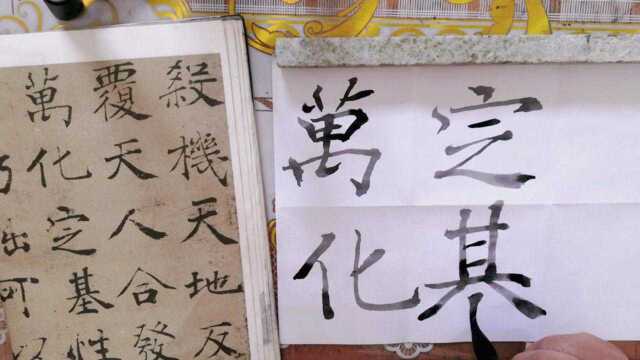 殺機天地反
覆天人合發
萬化定基性
可
萬化
定基